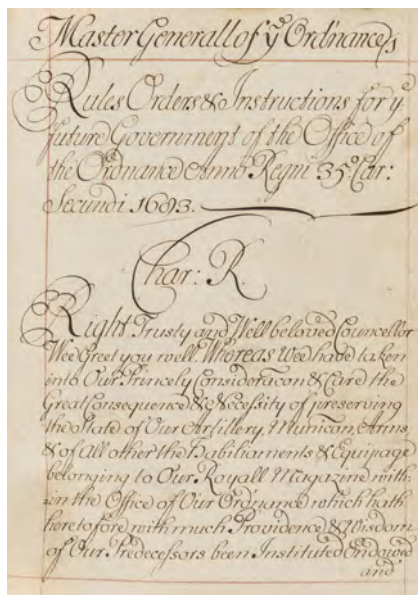 Master Generall of yͤ Ordnance
Rules Orders & Instructions for yͤ
future Government of the Office of
the Ordnance Anno Regni 35.º Car:
Secundi 1683.
Char: R.
Right Trusty and Wellbeloved Councellor
Wee Greet you well. Whereas Wee have taken
into Our Princely Consideracon & Care the
Great Consequence & Necessity of preserving
the State of Our Artillery, Municon, Arms,
& of All other the Habiliaments & Equipage
belonging to Our Royall Magazine with:
=in the Office of Our Ordnance which hath
heretofore with much Providence & Wisdom
of Our Predecessors been Instituted Endowed
and